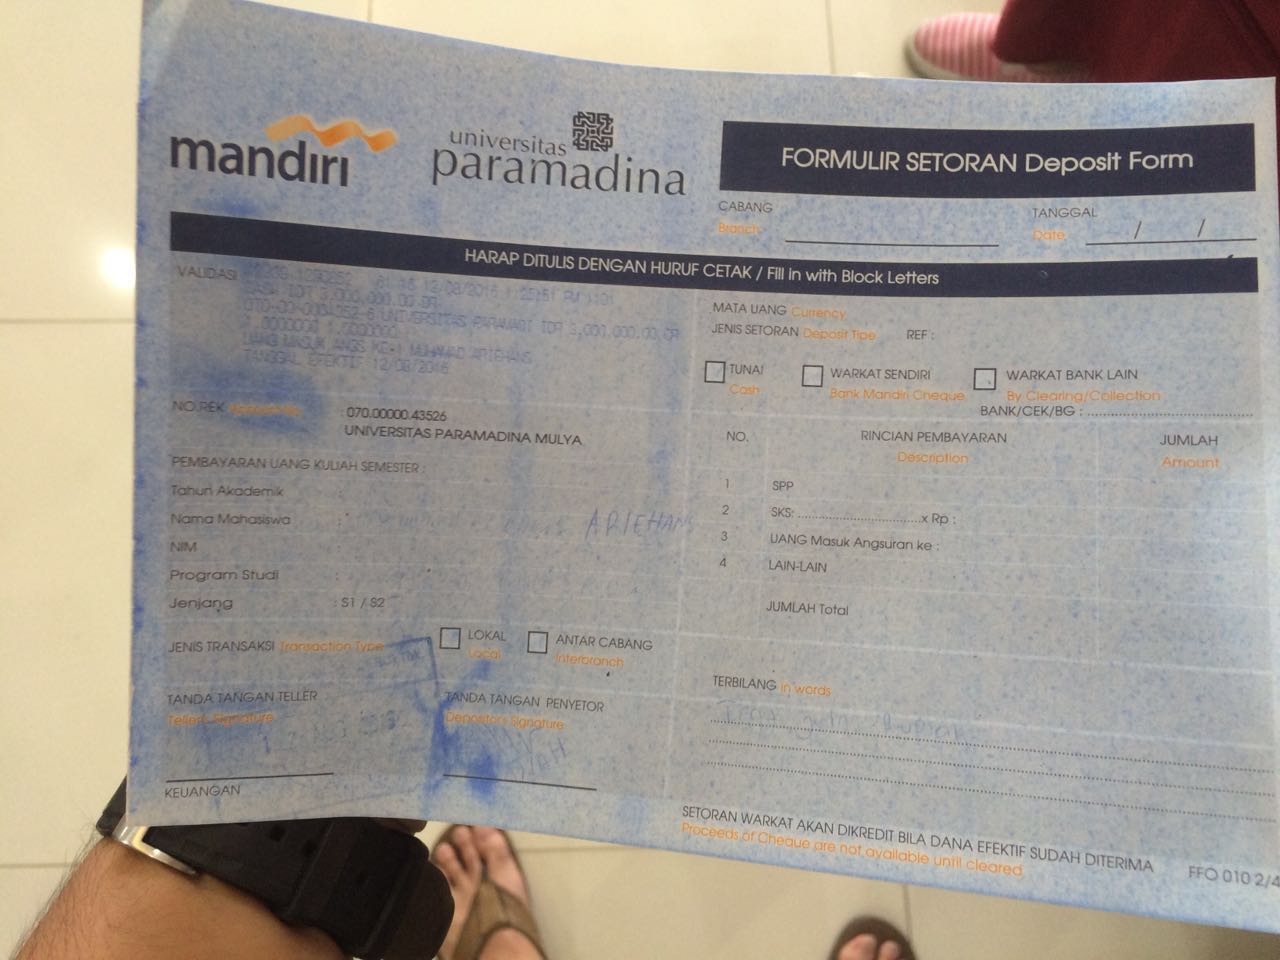 mandırı
universitas
paramadina
FORMULIR SETORAN Deposit Form
CABANG
Branch
TANGGAL
Date / /
HARAP DITULIS DENGAN HURUF CETAK / Fill in with Block Letters
VALIDASI
12/08/2016 1:25:51 PM
CASH IDR 3,000,000.00 DR
UNIVERSITAS PARAMADI IDR 3,000,000.00 CR
1.0000000 1.0000000
UANG MASUK ANGS KE-1 MUHAMAD ARIEHANS
TANGGAL EFEKTIF 12/08/2016
NO.REK Account No : 070.00000.43526
UNIVERSITAS PARAMADINA MULYA
PEMBAYARAN UANG KULIAH SEMESTER :
Tahun Akademik :
Nama Mahasiswa : ARIEHANS
NIM
Program Studi :
Jenjang : S1 / S2
JENIS TRANSAKSI Transaction Type
LOKAL
Local
ANTAR CABANG
Interbranch
TANDA TANGAN TELLER
Tellers Signature
TANDA TANGAN PENYETOR
Depositors Signature
KEUANGAN
MATA UANG Currency
JENIS SETORAN Deposit Tipe REF :
TUNAI
Cash
WARKAT SENDIRI
Bank Mandiri Cheque
WARKAT BANK LAIN
By Clearing/Collection
BANK/CEK/BG :
NO. RINCIAN PEMBAYARAN JUMLAH
Description Amount
1 SPP
2 SKS: x Rp :
3 UANG Masuk Angsuran ke :
4 LAIN-LAIN
JUMLAH Total
TERBILANG In words
SETORAN WARKAT AKAN DIKREDIT BILA DANA EFEKTIF SUDAH DITERIMA
Proceeds of Cheque are not available until cleared
FFO 010 2/4